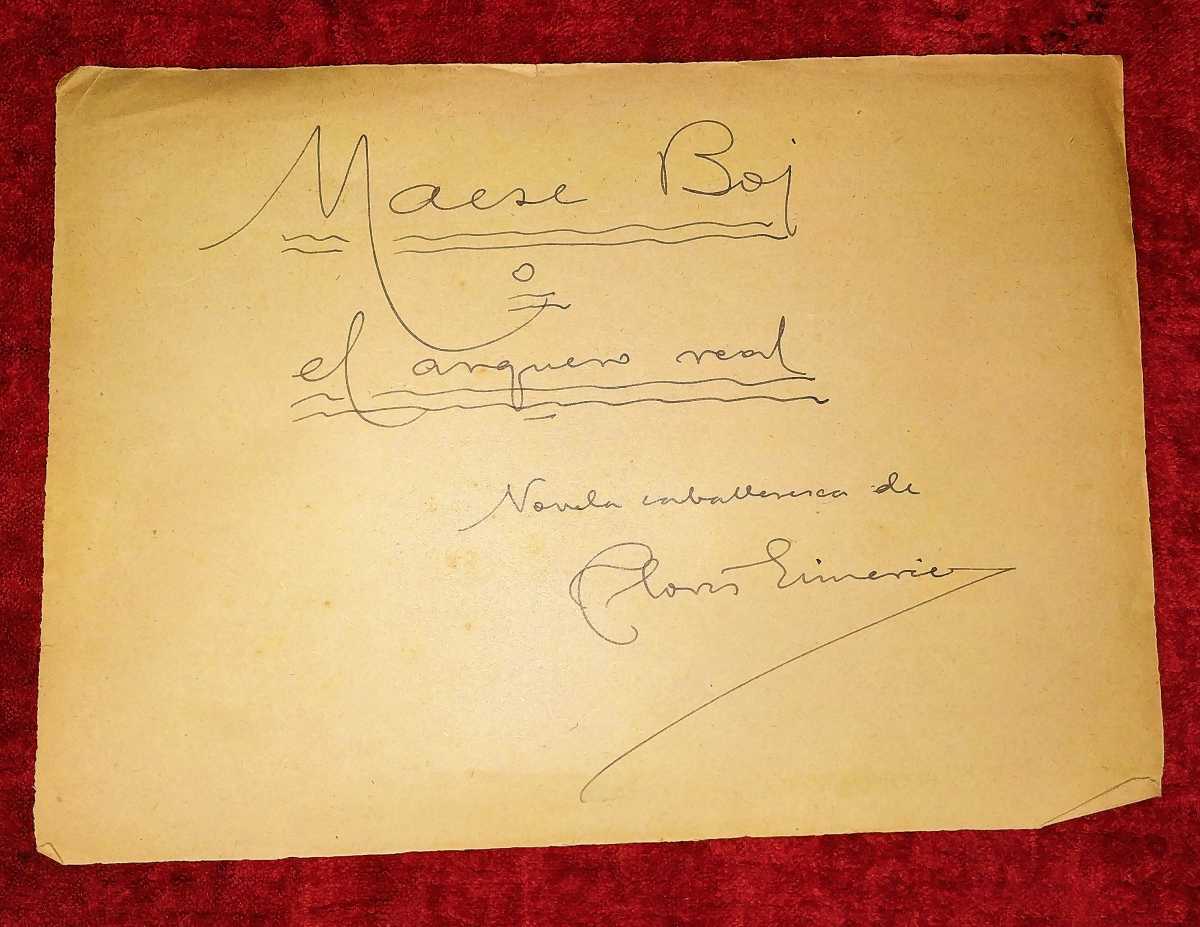 Maese Boj
o
el arquero real
Novela caballeresca de
Clovis Eimeric